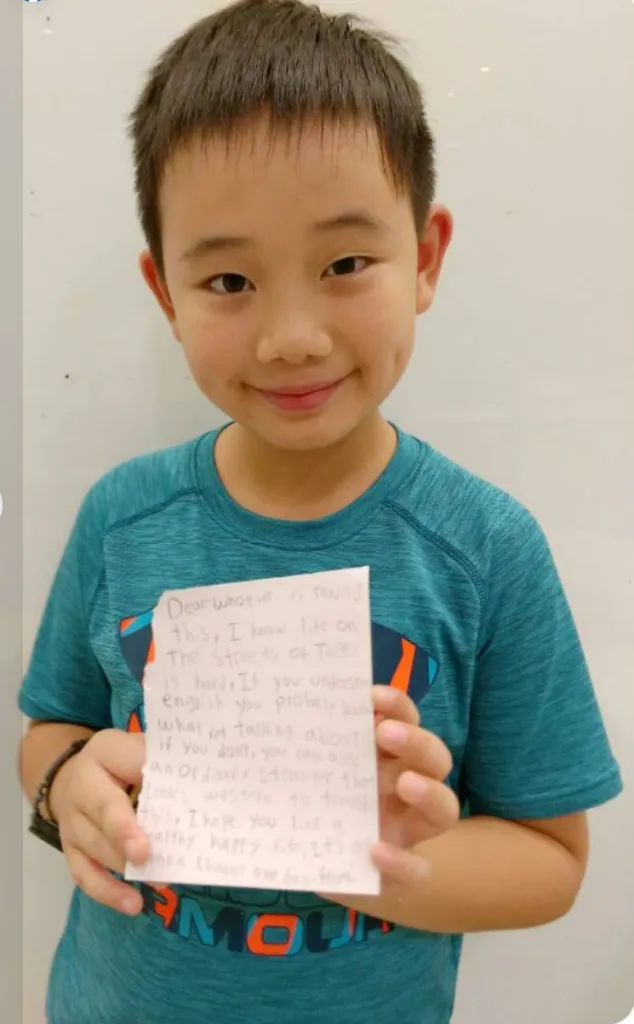 Dear whoever is reading
this, I know life on
The streets of
is hard, If you
english you probably
what talking about
if you dont, you can
an ordinary stranger that
looks western to
this, I hope you Live a
healthy happy life, It's
change one day. from
AMOUR